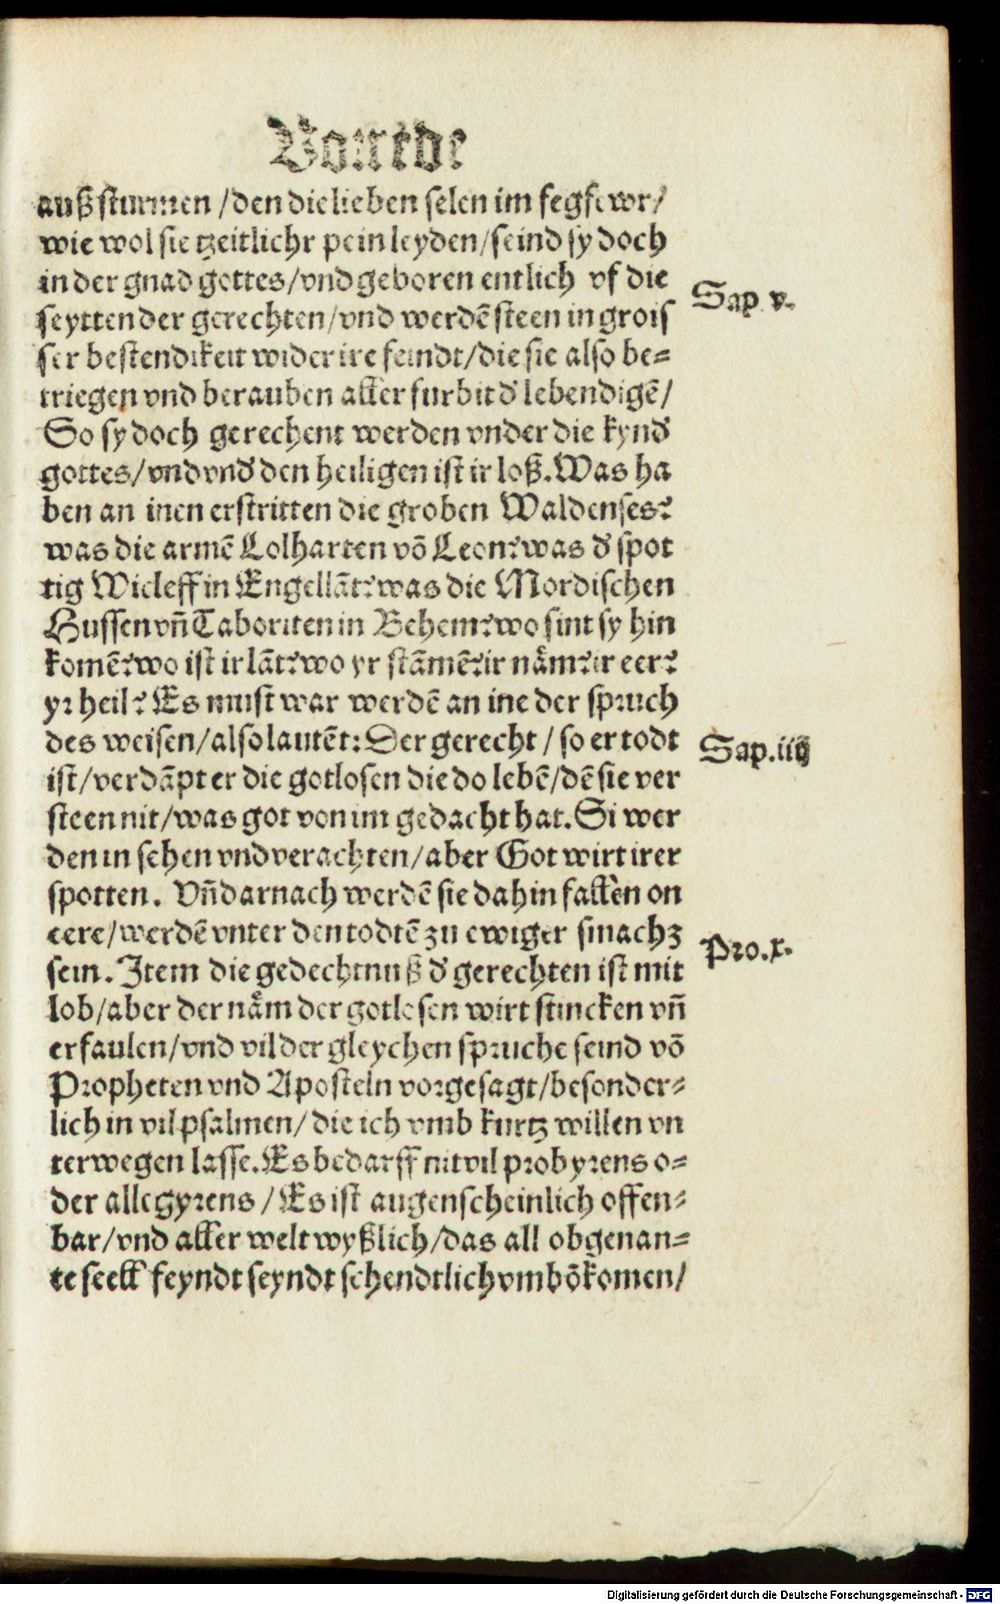 Vorrede
außsturmen /den die lieben selen im fegfewr/
wie wol sie tzeitlichr pein leyden/seind sy doch
in der gnad gottes/vnd geboren entlich vf die
Sap v.
seytten der gerechten/vnd werdē steen in grois
ser bestendikeit wider ire feindt/die sie also be=
triegen vnd berauben aller furbit d' lebendigē/
So sy doch gerechent werden vnder die kynd'
gottes/vnd vnd' den heiligen ist ir loß. Was ha
ben an inen erstritten die groben Waldenses?
was die armē Lolharten vō Leon? was d' spot
tig Wicleff in Engellāt? was die Mordischen
Hussen vñ Taboriten in Behem? wo sint sy hin
komē? wo ist ir lāt? wo yr stāmē? ir nåm? ir eer?
yr heil? Es must war werdē an ine der spruch
des weisen/also lautēt: Der gerecht / so er todt
Sap. iiij
ist/verdāpt er die gotlosen die do lebē/dē sie ver
steen nit/was got von im gedacht hat. Si wer
den in sehen vnd verachten/aber Got wirt irer
spotten. Vñ darnach werdē sie dahin fallen on
eere/werdē vnter den todtē zu ewiger smachz
Pro. x.
sein. Item die gedechtnuß d' gerechten ist mit
lob/aber der nåm der gotlosen wirt stincken vñ
erfaulen/vnd vil der gleychen spruche seind vō
Propheten vnd Aposteln vorgesagt/besonder=
lich in vil psalmen/ die ich vmb kurtz willen vn
terwegen lasse. Es bedarff nit vil probyrens o=
der allegyrens / Es ist augenscheinlich offen=
bar/vnd aller welt wyßlich/das all obgenan=
te seell feyndt seyndt schendtlich vmbkōmen/
Digitalisierung gefördert durch die Deutsche Forschungsgemeinschaft - DFG